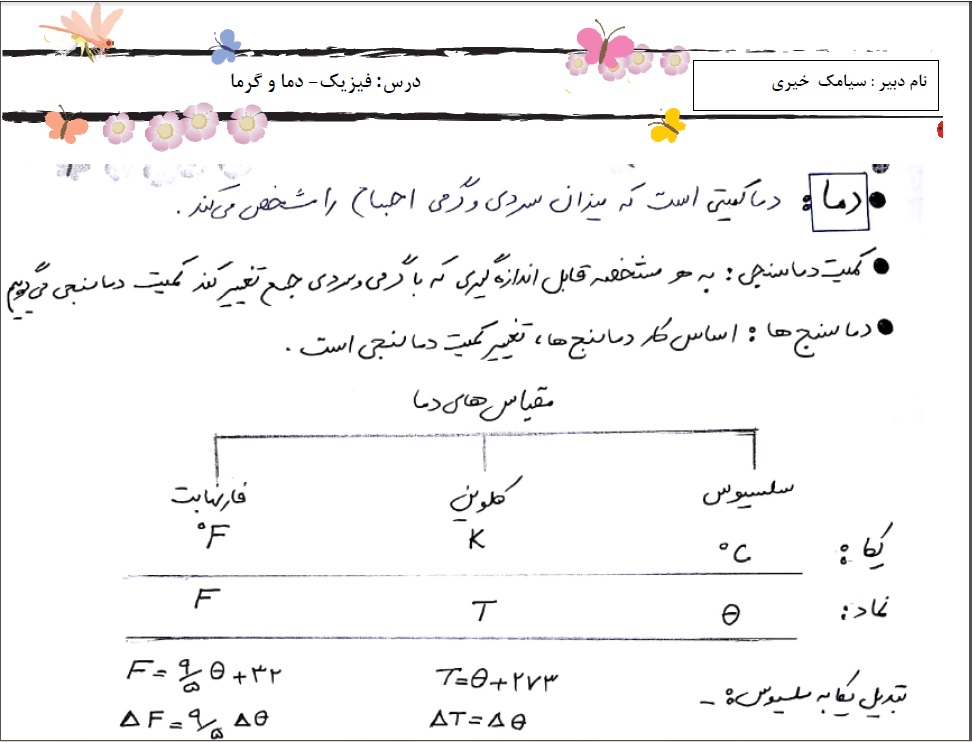 نام دبیر : سیامک خیری
درس: فیزیک- دما و گرما
دما : دما کمیتی است که میزان سردی و گرمی اجسام را مشخص می‌کند .
کمیت دماسنجی : به هر مشخصه قابل اندازه‌گیری که با گرمی و سردی جسم تغییر کند کمیت دماسنجی می‌گوییم
دماسنج ها : اساس کار دماسنج ها، تغییر کمیت دماسنجی است .
مقیاس های دما
سلسیوس کلوین فارنهایت
یکا : °C K °F
نماد : θ T F
تبدیل یکا به سلسیوس : - T=θ+۲۷۳ F=۹/۵ θ+۳۲
ΔT=Δθ ΔF=۹/۵ Δθ